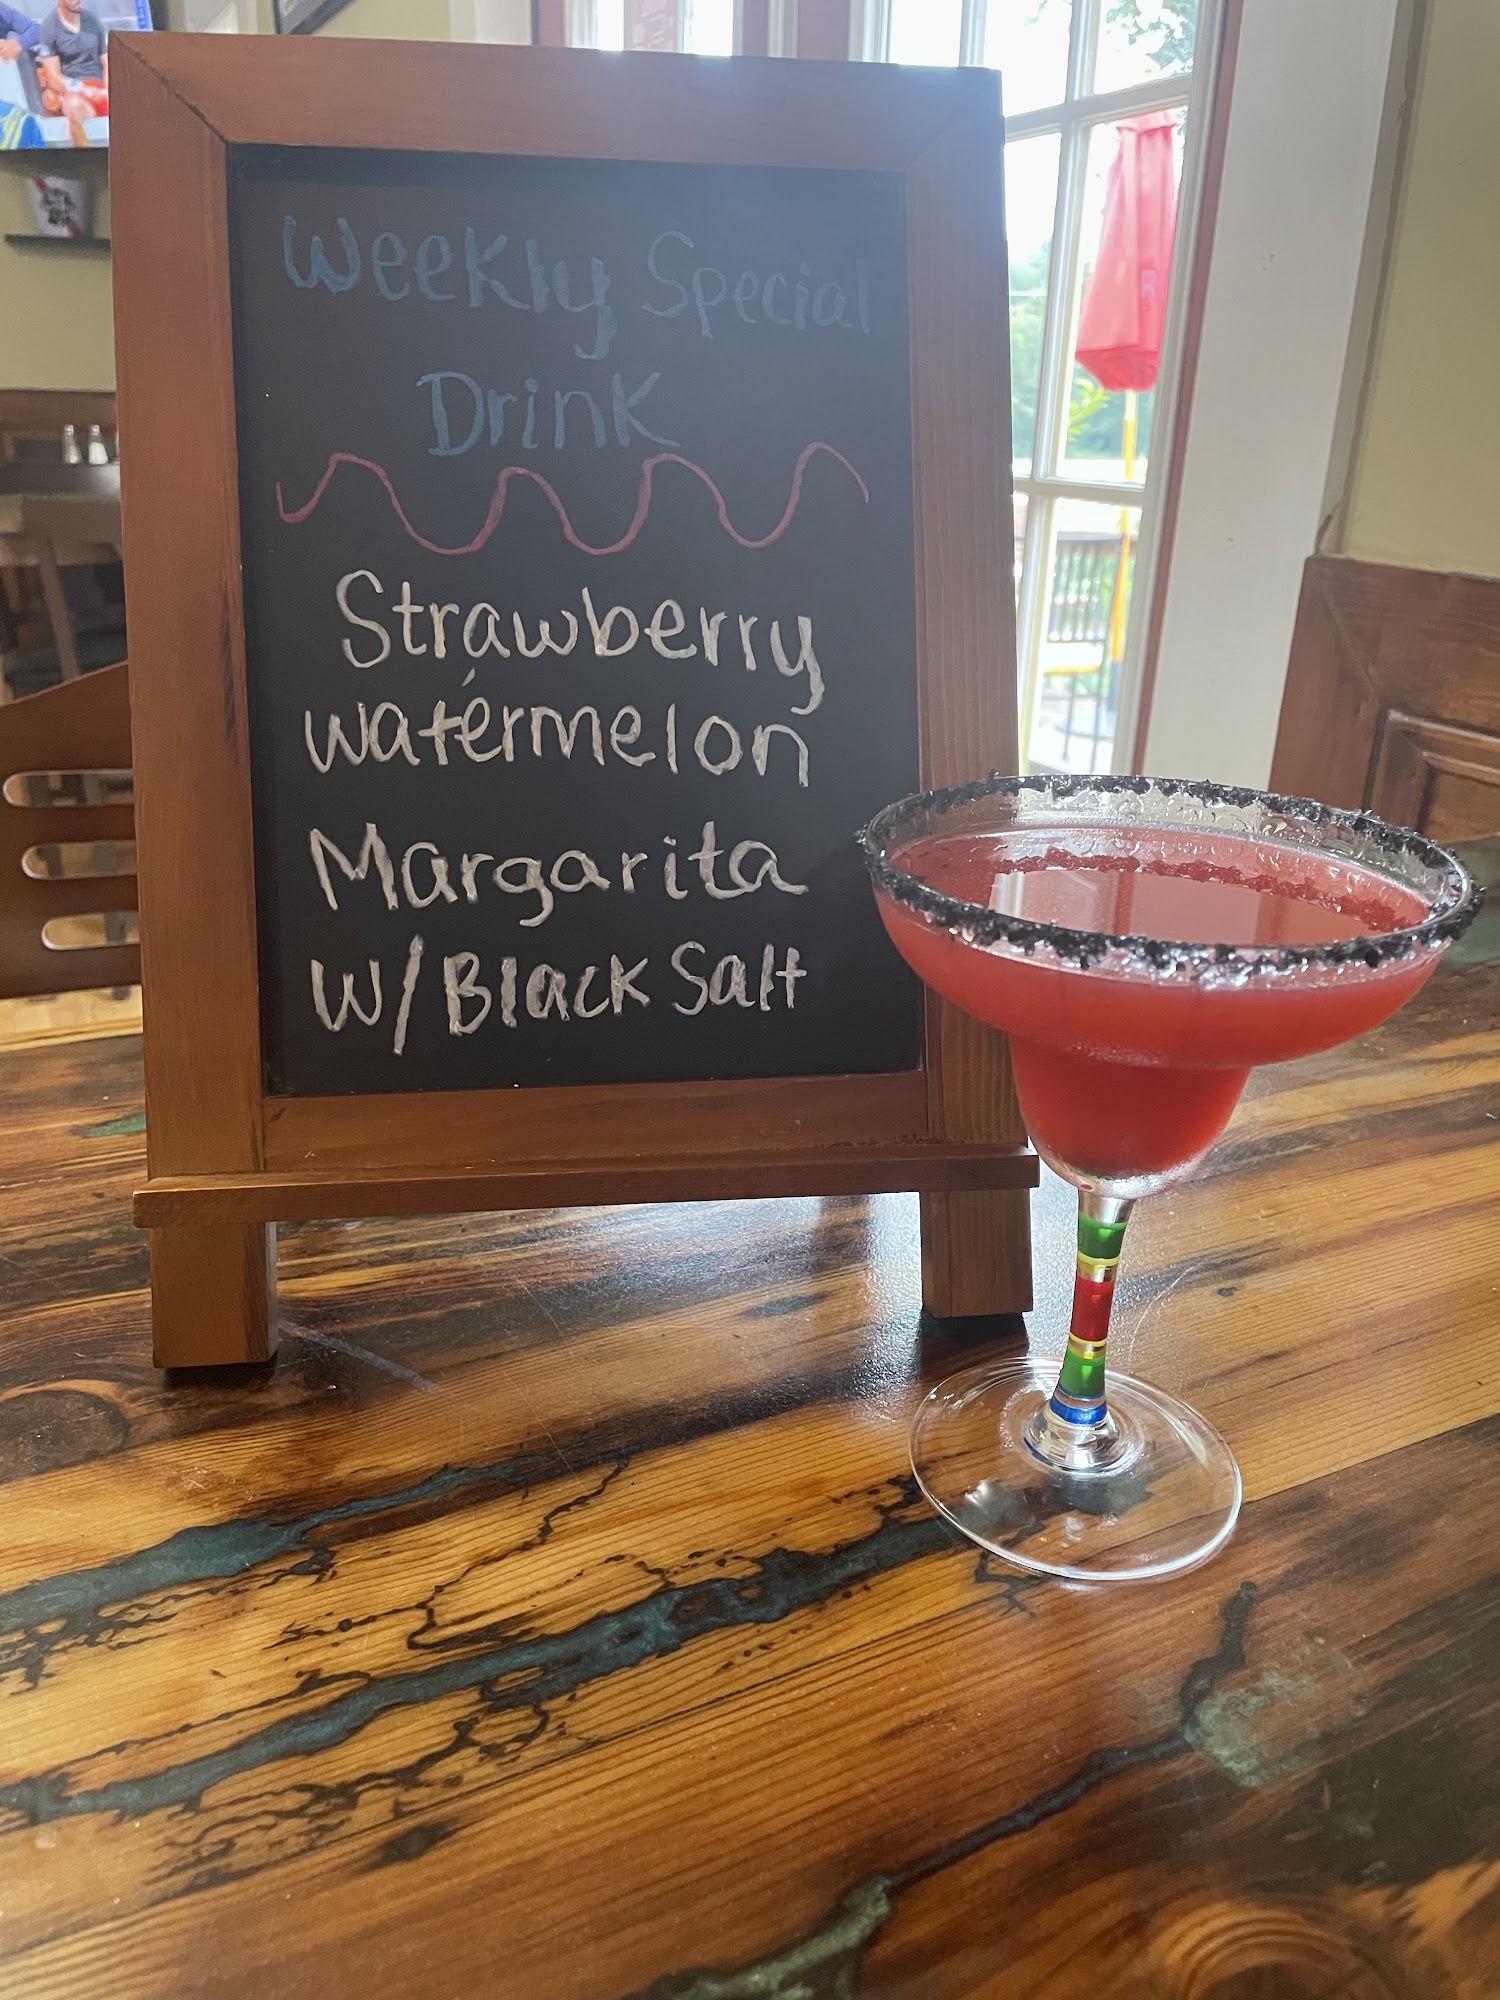 Weekly Special
Drink
Strawberry
watermelon
Margarita
W/Black Salt